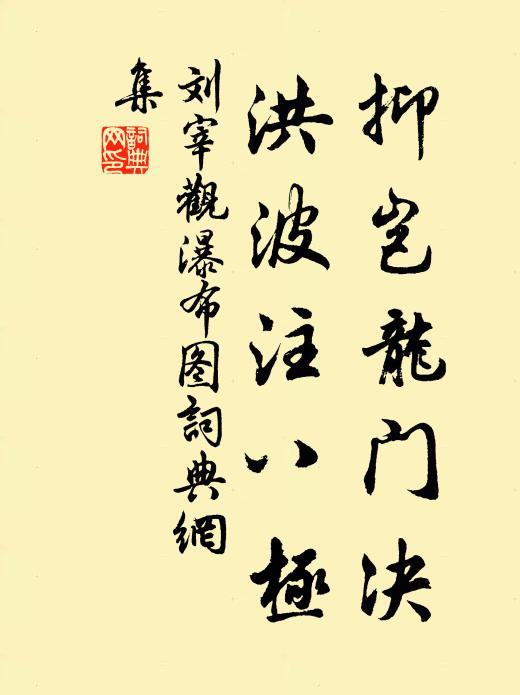 抑岂龍门决
洪波注八極
刘宰觀瀑布图詞典網
集
詞典
网印